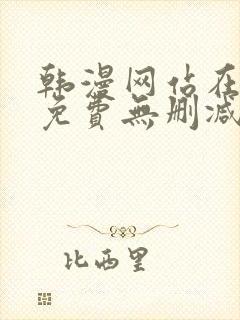 韩漫网站在
免費無删减
比西里